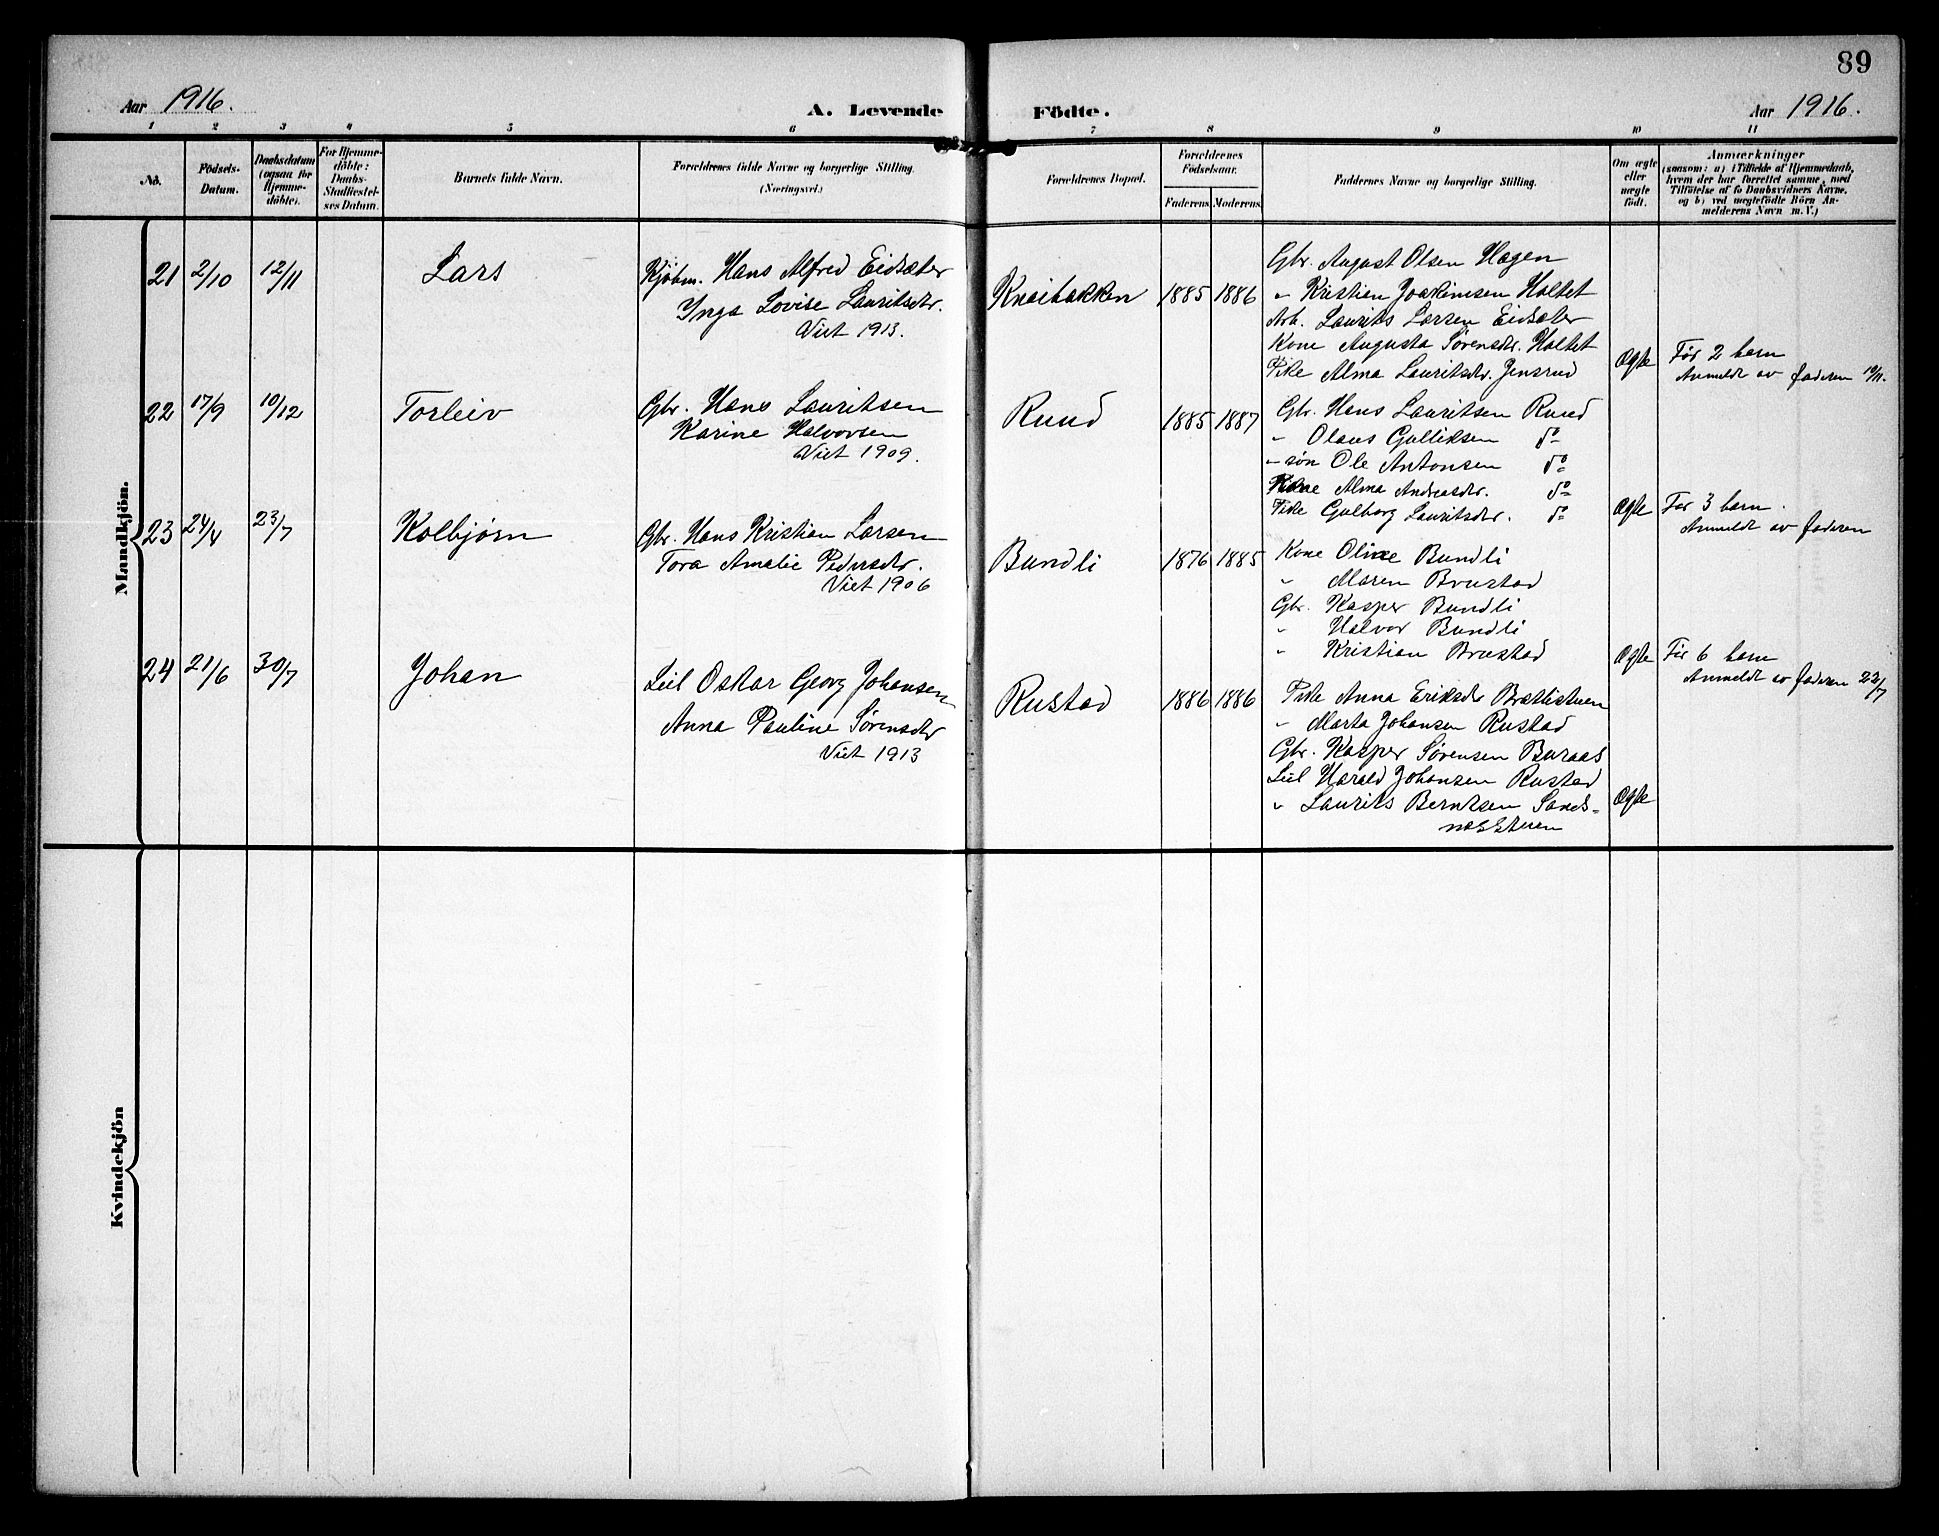 89
Aar 1916.
A. Levende Födte.
Aar 1916.
1 2 3 4 5 6 7 8 9 10 11
No.
Födsels-Datum.
Daabsdatum (ogsaa for Hjemme-döbte).
For Hjemme-döbte: Daabs-Stadfæstel-ses Datum.
Barnets fulde Navn.
Forældrenes fulde Navne og borgerlige Stilling. (Næringsvei.)
Forældrenes Bopæl.
Forældrenes Födselsaar.
Faderens Moderens
Faddernes Navne og borgerlige Stilling.
Om ægte eller uægte födt.
Anmærkninger
(saasom: a) i Tilfælde af Hjemmedaab,
hvem der har forrettet samme, med
Tilföielse af to Daabsvidners Navne.
og b) ved uægtefödte Börn An-
melderens Navn m. V.)
Mandkjön.
21 2/10 12/11 Lars
Kjøbm. Hans Alfred Eidsæter
Inga Lovise Lauritsdtr.
Viet 1913.
Knaibakken 1885 1886
Gbr. August Olsen Hagen
" Kristian Joakimsen Holtet
Arb. Laurits Larsen Eidsæter
Kone Augusta Sørensdtr. Holtet
Pike Alma Lauritsdtr. Jensrud
Ægte
Før 2 barn
Anmeldt av faderen 10/11.
22 17/9 10/12 Torleiv
Gbr. Hans Lauritsen
Karine Halvorsen
Viet 1909.
Ruud 1885 1887
Gbr. Hans Lauritsen Ruud
" Olaus Gulliksen do
" søn Ole Antonsen do
Kone Alma Andreasdtr. do
Pike Gulborg Lauritsdtr. do
Ægte
Før 3 barn.
Anmeldt av faderen
23 24/4 23/7 Kolbjørn
Gbr. Hans Kristian Larsen
Tora Amalie Pedersdtr.
Viet 1906
Bundli 1876 1885
Kone Oline Bundli
" Maren Brustad
Gbr. Kasper Bundli
" Halvor Bundli
" Kristian Brustad
Ægte
Før 6 barn
Anmeldt av faderen 22/7
24 21/6 30/7 Johan
Leil Oskar Georg Johansen
Anna Pauline Sørensdtr
Viet 1913
Rustad 1886 1886
Pike Anna Eriksdtr Brætlistuen
" Marta Johansen Rustad
Gbr. Kasper Sørensen Buraas
Leil Harald Johansen Rustad
" Laurits Berntsen Sands-
næsstuen
Ægte
Kvindekjön